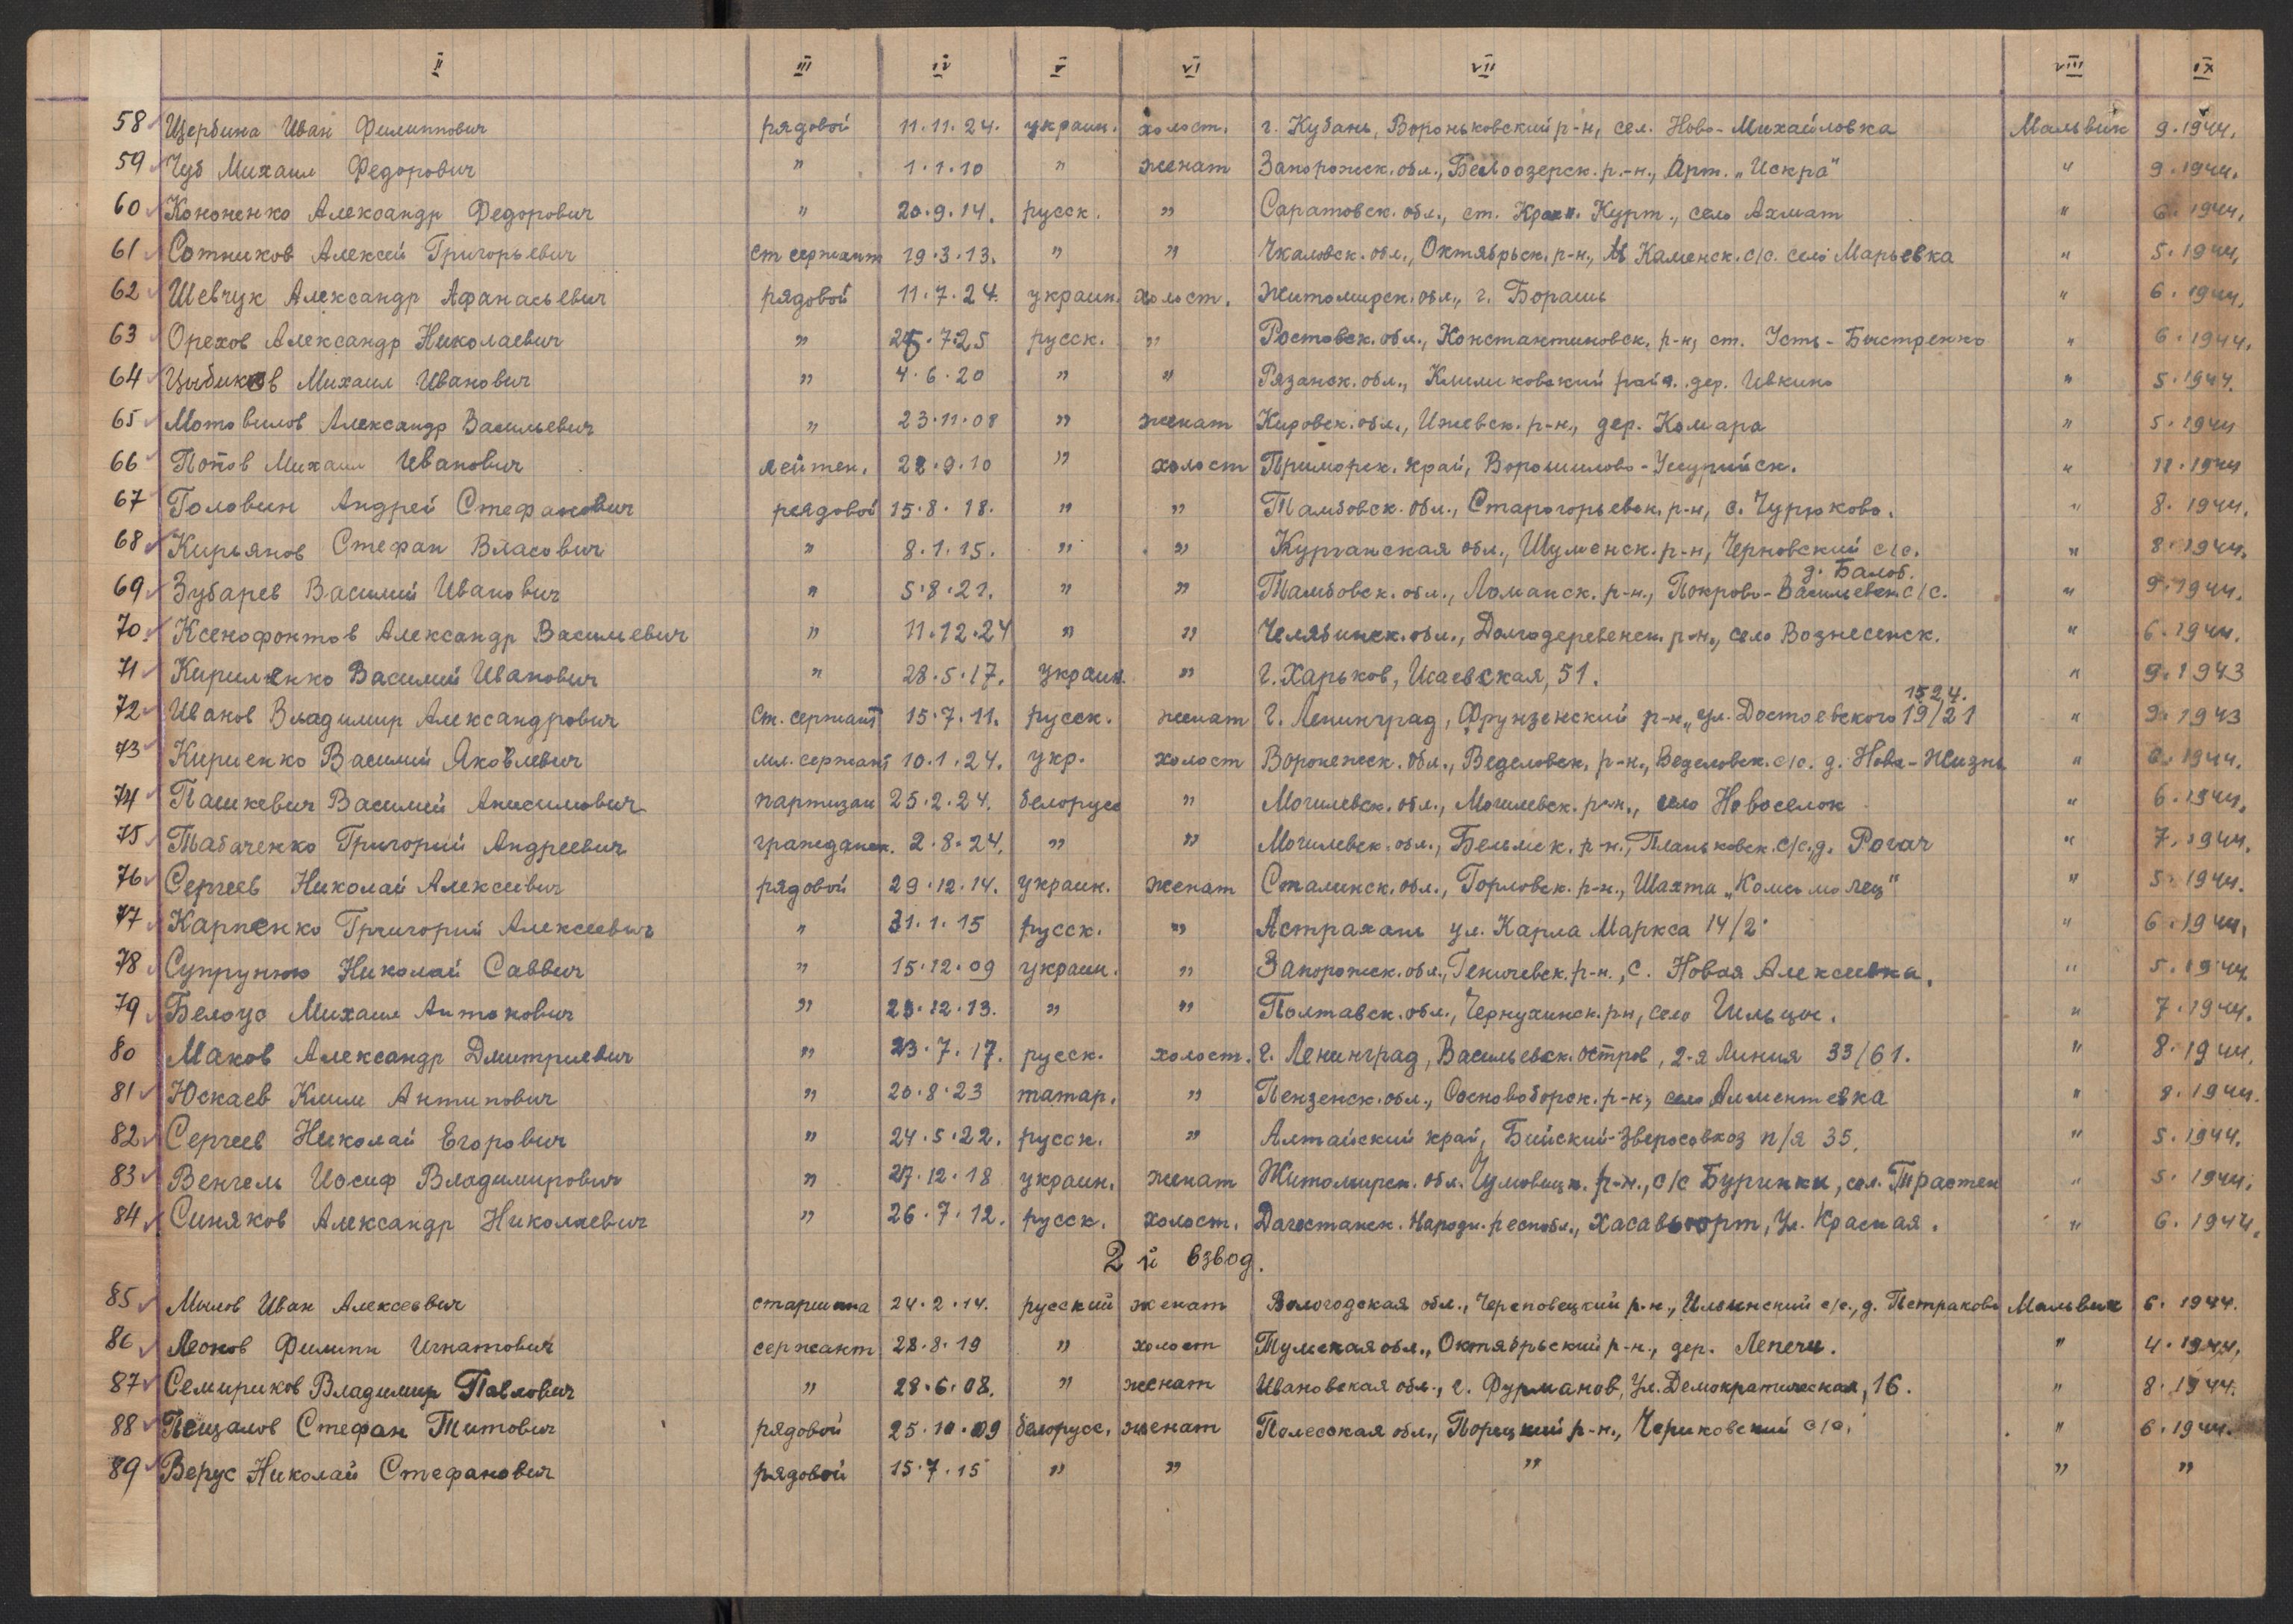 II III IV V VI VII VIII IX
58 Щербина Иван Филиппович рядовой 11.11.24. украин. холост. г. Кубань, Вороньковский р-н, сел. Ново-Михайловка Мальвик 9.1944.
59 Чуб Михаил Федорович " 1.1.10 " женат Запорожск. обл., Белоозерск. р-н., Арт. „Искра" " 9.1944.
60 Кононенко Александр Федорович " 20.9.14. русск. " Саратовск. обл., ст. Красн. Курт., село Ахмат " 6.1944.
61 Сотников Алексей Григорьевич ст сержант 19.3.13. " " Чкаловск. обл., Октябрьск. р-н., Каменск. с/с. село Марьевка " 5.1944.
62 Шевчук Александр Афанасьевич рядовой 11.7.24. украин. холост. Житомирск. обл., г. Бораши " 6.1944.
63 Орехов Александр Николаевич " 25.7.25 русск. " Ростовск. обл., Константиновск. р-н, ст. Усть-Быстренко " 6.1944.
64 Цыбиков Михаил Иванович " 4.6.20 " " Рязанск. обл., Клипиковский район. дер. Ивкино " 5.1944.
65 Мотовилов Александр Васильевич " 23.11.08 " женат Кировск. обл., Ижевск. р-н., дер. Комара " 5.1944
66 Попов Михаил Иванович лейтен. 28.9.10 " холост Приморск. край, Ворошилово-Уссурийск. " 11.1944
67 Головин Андрей Стефанович рядовой 15.8.18. " " Тамбовск. обл., Старогорьевск. р-н, с. Чурюково. " 8.1944.
68 Кирьянов Стефан Власович " 8.1.15. " " Курганская обл., Шуменск. р-н, Черновский с/с. " 8.1944.
д. Балоб.
69 Зубарев Василий Иванович " 5.8.21. " " Тамбовск. обл., Ломанск. р-н., Покрово-Васильевск. с/с. " 9.1944.
70. Ксенофонтов Александр Васильевич " 11.12.24 " " Челябинск. обл., Долгодеревенск. р-н., село Вознесенск. " 6.1944.
71 Кириленко Василий Иванович " 28.5.17. украин. " г. Харьков, Исаевская, 51. " 9.1943
1524.
72 Иванов Владимир Александрович Ст. сержант 15.7.11. русск. женат г. Ленинград, Фрунзенский р-н, ул. Достоевского 19/21 " 9.1943
73 Кириенко Василий Яковлевич мл. сержант 10.1.24. укр. холост Воронежск. обл., Веделовск. р-н., Веделовск. с/с. д. Нова-Жизнь " 6.1944.
74 Пашкевич Василий Анисимович партизан 25.2.24. белорусс " Могилевск. обл., Могилевск. р-н., село Новоселок " 6.1944.
75 Табаченко Григорий Андреевич гражданск. 2.8.24. " " Могилевск. обл., Бельмск. р-н., Планьковск. с/с, д. Рогач " 7.1944.
76 Сергеев Николай Алексеевич рядовой 29.12.14. украин. женат Сталинск. обл., Горловск. р-н., Шахта „Комсомолец" " 5.1944.
77 Карпенко Григорий Алексеевич " 31.1.15 русск. " Астрахань ул. Карла Маркса 14/2. " 6.1944.
78 Супрунюю Николай Саввич " 15.12.09 украин. " Запорожск. обл., Геничевск. р-н., с. Новая Алексеевка. " 5.1944.
79 Белоус Михаил Антонович " 23.12.13. " " Полтавск. обл., Чернухинск. р-н, село Гильцы. " 7.1944.
80 Маков Александр Дмитриевич " 23.7.17. русск. холост. г. Ленинград, Васильевск. остров, 2-я Линия 33/61. " 8.1944.
81 Юскаев Клим Антипович " 20.8.23 татар. " Пензенск. обл., Сосновоборск. р-н, село Алментевка " 8.1944.
82 Сергеев Николай Егорович " 24.5.22. русск. " Алтайский край, Бийский-Зверосовхоз п/я 35. " 5.1944.
83 Венгель Иосиф Владимирович " 27.12.18 украин. женат Житомирск. обл. Чумовицк. р-н., с/с Буринки, сел. Трастен " 5.1944.
84 Синяков Александр Николаевич " 26.7.12. русск. холост. Дагестанск. Народн. республ., Хасавьюрт, ул. Красная. " 6.1944.
2й взвод.
85 Милов Иван Алексеевич старшина 24.2.14. русский женат Вологодская обл., Череповецкий р-н., Ильинский с/с., д. Петраково Мальвик 6.1944.
86 Леонов Филипп Игнатович сержант 28.8.19 " холост Тульская обл., Октябрьский р-н., дер. Лепечи. " 4.1944.
87 Семириков Владимир Павлович " 28.6.08. " женат Ивановская обл., г. Фурманов, ул. Демократическая, 16. " 8.1944.
88 Пещалов Стефан Титович рядовой 25.10.09 белорусс. женат Полесская обл., Порецкий р-н., Чериковский с/с. " 6.1944.
89 Верус Николай Стефанович рядовой 15.7.15 " " " " "